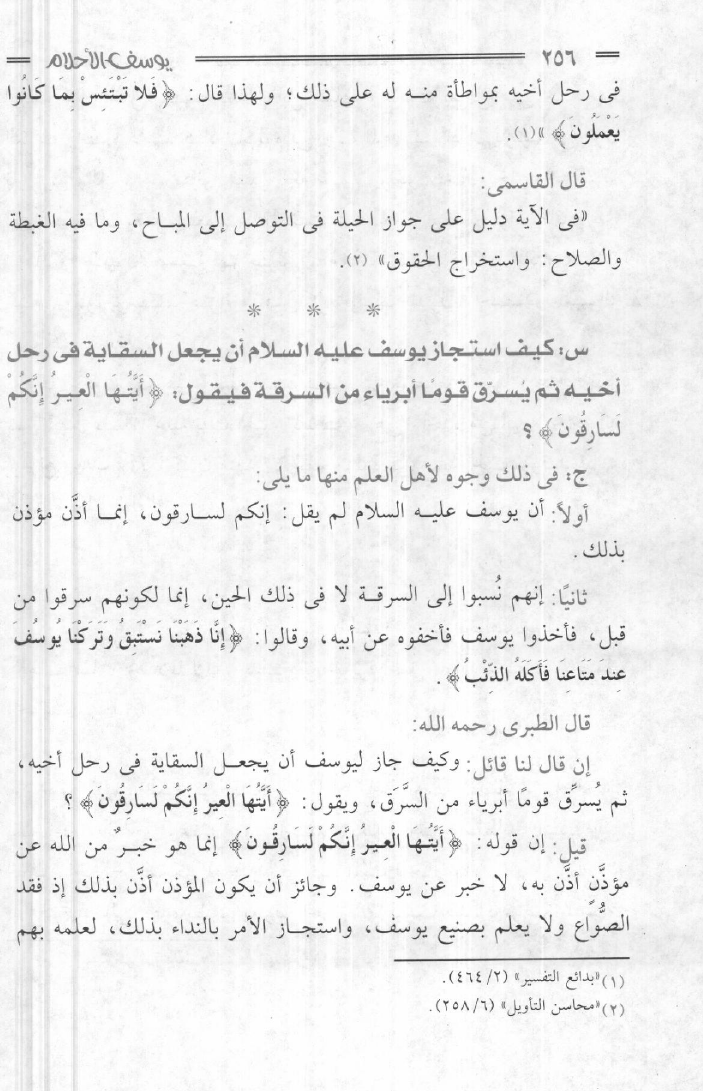 ٢٥٦ يوسف الأحلام
فى رحل أخيه بمواطأة منـه له على ذلك؛ ولهذا قال: ﴿ فَلا تَبْتَئِسْ بِمَا كَانُوا
يَعْمَلُونَ ﴾ »(١).
قال القاسمى:
«فى الآية دليل على جواز الحيلة فى التوصل إلى المبـاح، وما فيه الغبطة
والصلاح: واستخراج الحقوق» (٢).
* * *
س: كيف استجاز يوسف عليه السلام أن يجعل السقاية فى رحل
أخيه ثم يُسرّق قومًا أبرياء من السرقة فيقول: ﴿ أَيَّتُهَا الْعِيرُ إِنَّكُمْ
لَسَارِقُونَ ﴾ ؟
ج: فى ذلك وجوه لأهل العلم منها ما يلى:
أولاً: أن يوسف عليـه السلام لم يقل: إنكم لسـارقون، إنمـا أذَّن مؤذن
بذلك.
ثانيًا: إنهم نُسبوا إلى السرقـة لا فى ذلك الحين، إنما لكونهم سرقوا من
قبل، فأخذوا يوسف فأخفوه عن أبيه، وقالوا: ﴿ إِنَّا ذَهَبْنَا نَسْتَبِقُ وَتَرَكْنَا يُوسُفَ
عِندَ مَتَاعِنَا فَأَكَلَهُ الذِّئْبُ ﴾ .
قال الطبرى رحمه الله:
إن قال لنا قائل: وكيف جاز ليوسف أن يجعـل السقاية فى رحل أخيه،
ثم يُسرِّق قومًا أبرياء من السَّرَق، ويقول: ﴿ أَيَّتُهَا الْعِيرُ إِنَّكُمْ لَسَارِقُونَ ﴾ ؟
قيل: إن قوله: ﴿ أَيَّتُهَا الْعِيرُ إِنَّكُمْ لَسَارِقُونَ ﴾ إنما هو خبـرٌ من الله عن
مؤذَّنٍ أذَّن به، لا خبر عن يوسف. وجائز أن يكون المؤذن أذَّن بذلك إذ فقد
الصُّوَاع ولا يعلم بصنيع يوسف، واستجـاز الأمر بالنداء بذلك، لعلمه بهم
(١) «بدائع التفسير» (٢/ ٤٦٤).
(٢) «محاسن التأويل» (٦/ ٢٥٨).